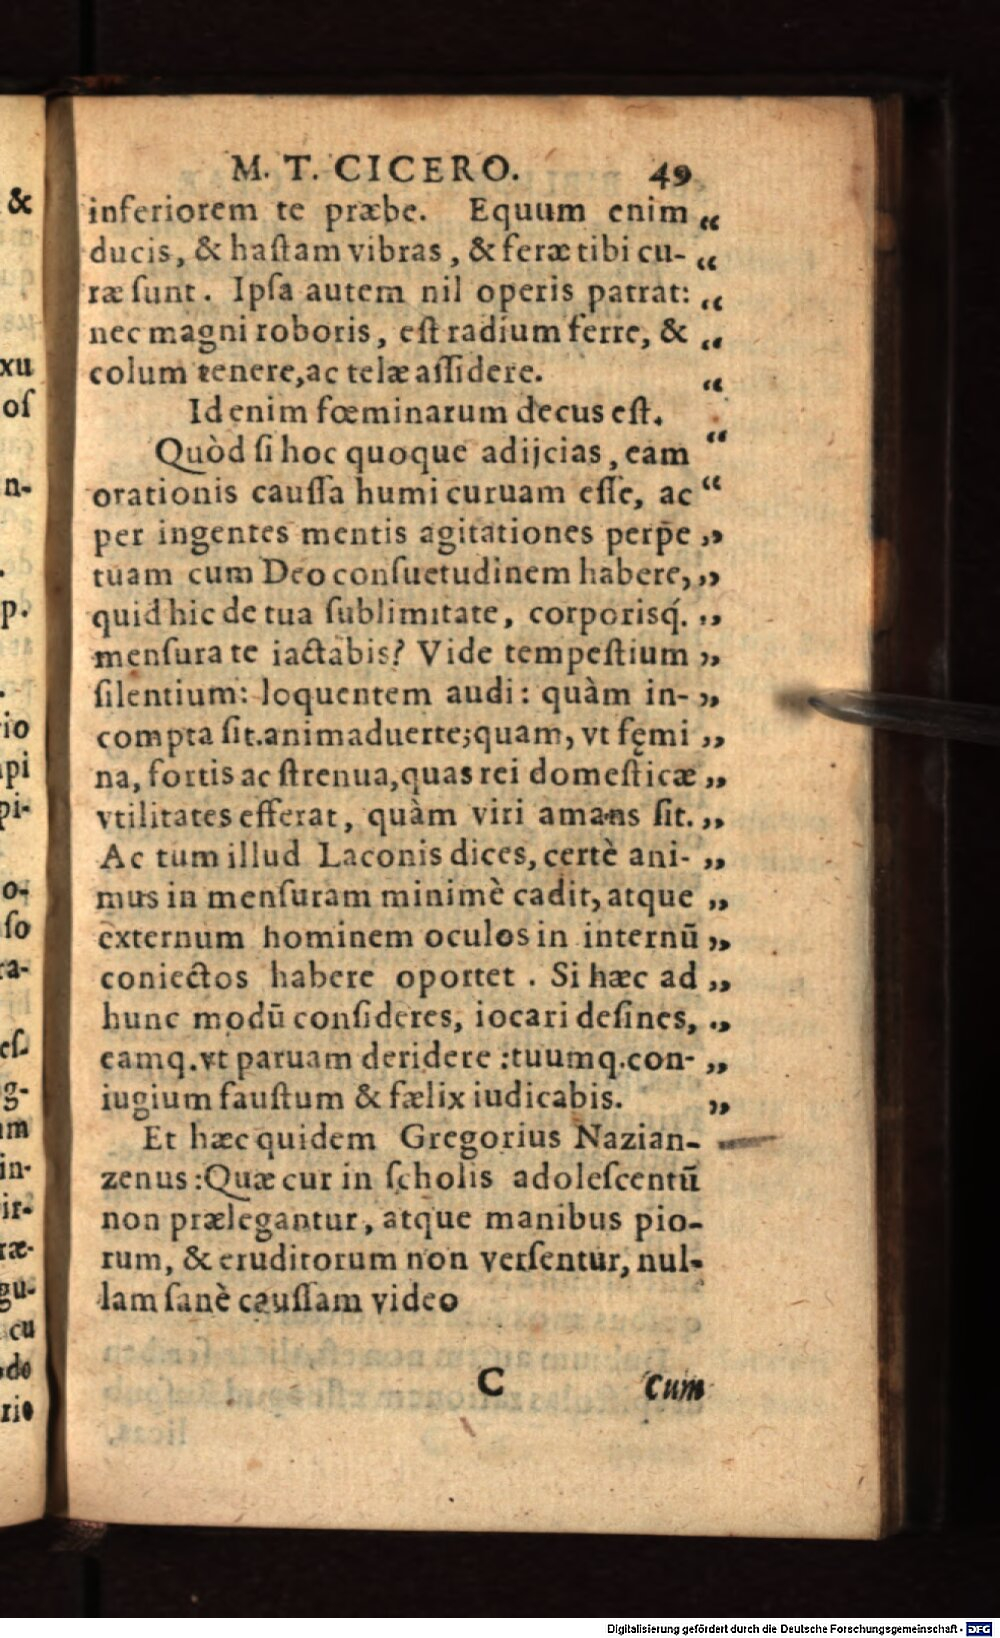 M. T. CICERO. 49
inferiorem te præbe. Equum enim „
ducis, & haſtam vibras, & feræ tibi cu- „
ræ ſunt. Ipſa autem nil operis patrat: „
nec magni roboris, eſt radium ferre, & „
colum tenere, ac telæ aſſidere. „
Id enim fœminarum decus eſt.
Quòd ſi hoc quoque adijcias, eam “
orationis cauſſa humi curuam eſſe, ac “
per ingentes mentis agitationes perpē „
tuam cum Deo conſuetudinem habere, „
quid hic de tua ſublimitate, corporisq́. „
menſura te iactabis? Vide tempeſtium „
ſilentium: loquentem audi: quàm in- „
compta ſit. animaduerte; quam, vt fęmi „
na, fortis ac ſtrenua, quas rei domeſticæ „
vtilitates efferat, quàm viri amans ſit. „
Ac tum illud Laconis dices, certè ani- „
mus in menſuram minimè cadit, atque „
externum hominem oculos in internū „
coniectos habere oportet. Si hæc ad „
hunc modū conſideres, iocari deſines, „
eamq. vt paruam deridere: tuumq. con- „
iugium fauſtum & fælix iudicabis. „
Et hæc quidem Gregorius Nazian-
zenus: Quæ cur in ſcholis adoleſcentū
non prælegantur, atque manibus pio-
rum, & eruditorum non verſentur, nul-
lam ſanè cauſſam video
C Cum
&
xu
oſ
n-
p.
io
api
pi-
o-
ſo
ra-
eſ-
g-
um
in-
ir-
ræ-
gu-
cu
do
rio
Digitalisierung gefördert durch die Deutsche Forschungsgemeinschaft - DFG